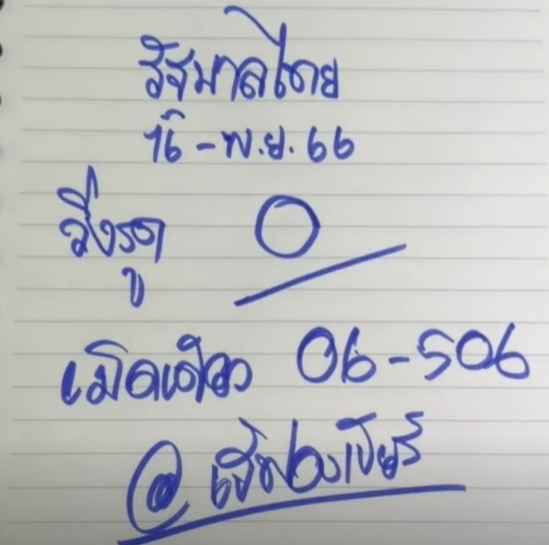 รัฐบาลไทย
16-พ.ย.66
วิ่งรูด 0
เม็ดเดียว 06-506
@